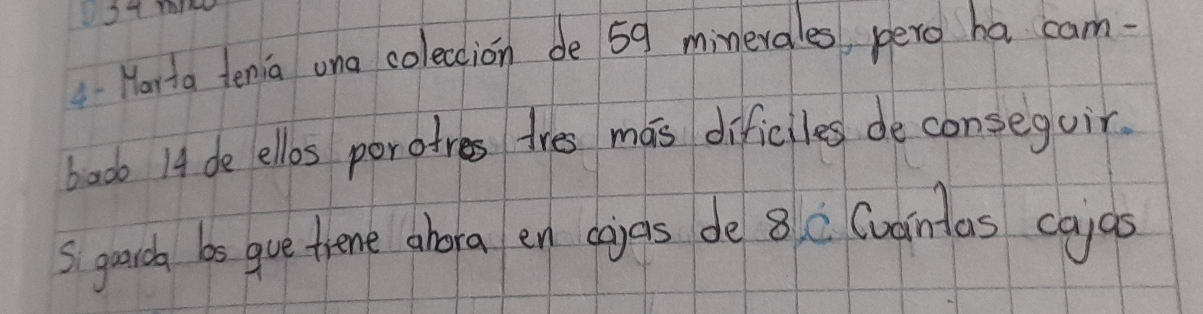 4- Marta tenía una colección de 59 minerales, pero ha cam-
bado 14 de ellos porotres tres más dificiles de conseguir.
Si guarda los que tiene ahora en cajas de 8 ¿ Cuántas cajas